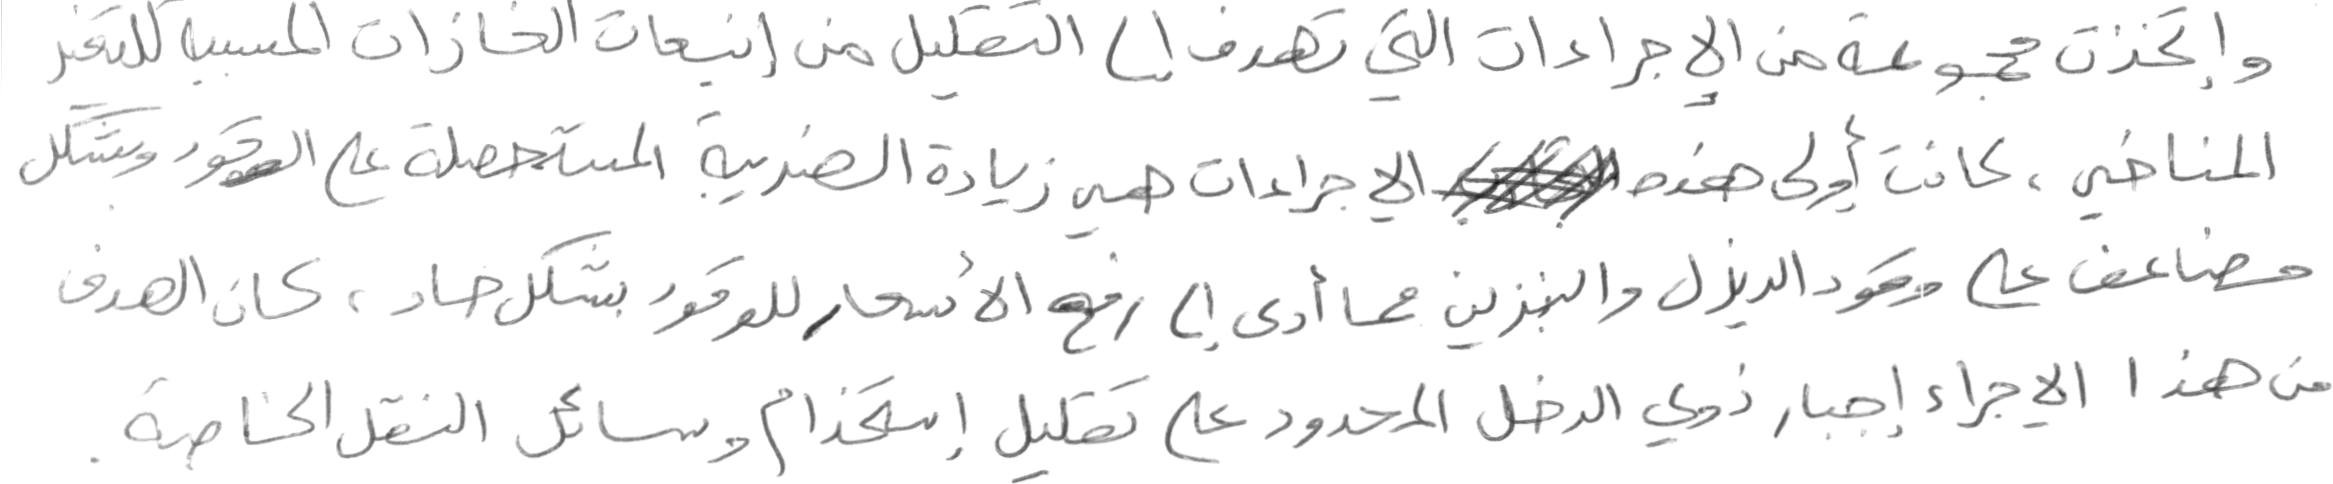 وإتخذت مجموعة من الإجراءات التي تهدف إلى التقليل من إنبعاث الغازات المسببة للتغير
المناخي ، كانت أولى هذه الاجراءات هي زيادة الضريبة المستحصلة على الوقود وبشكل
مضاعف على وقود الديزل والبنزين مما أدى إلى رفع الأسعار للوقود بشكل حاد ، كان الهدف
من هذا الاجراء إجبار ذوي الدخل المحدود على تقليل إستخدام وسائل النقل الخاصة .